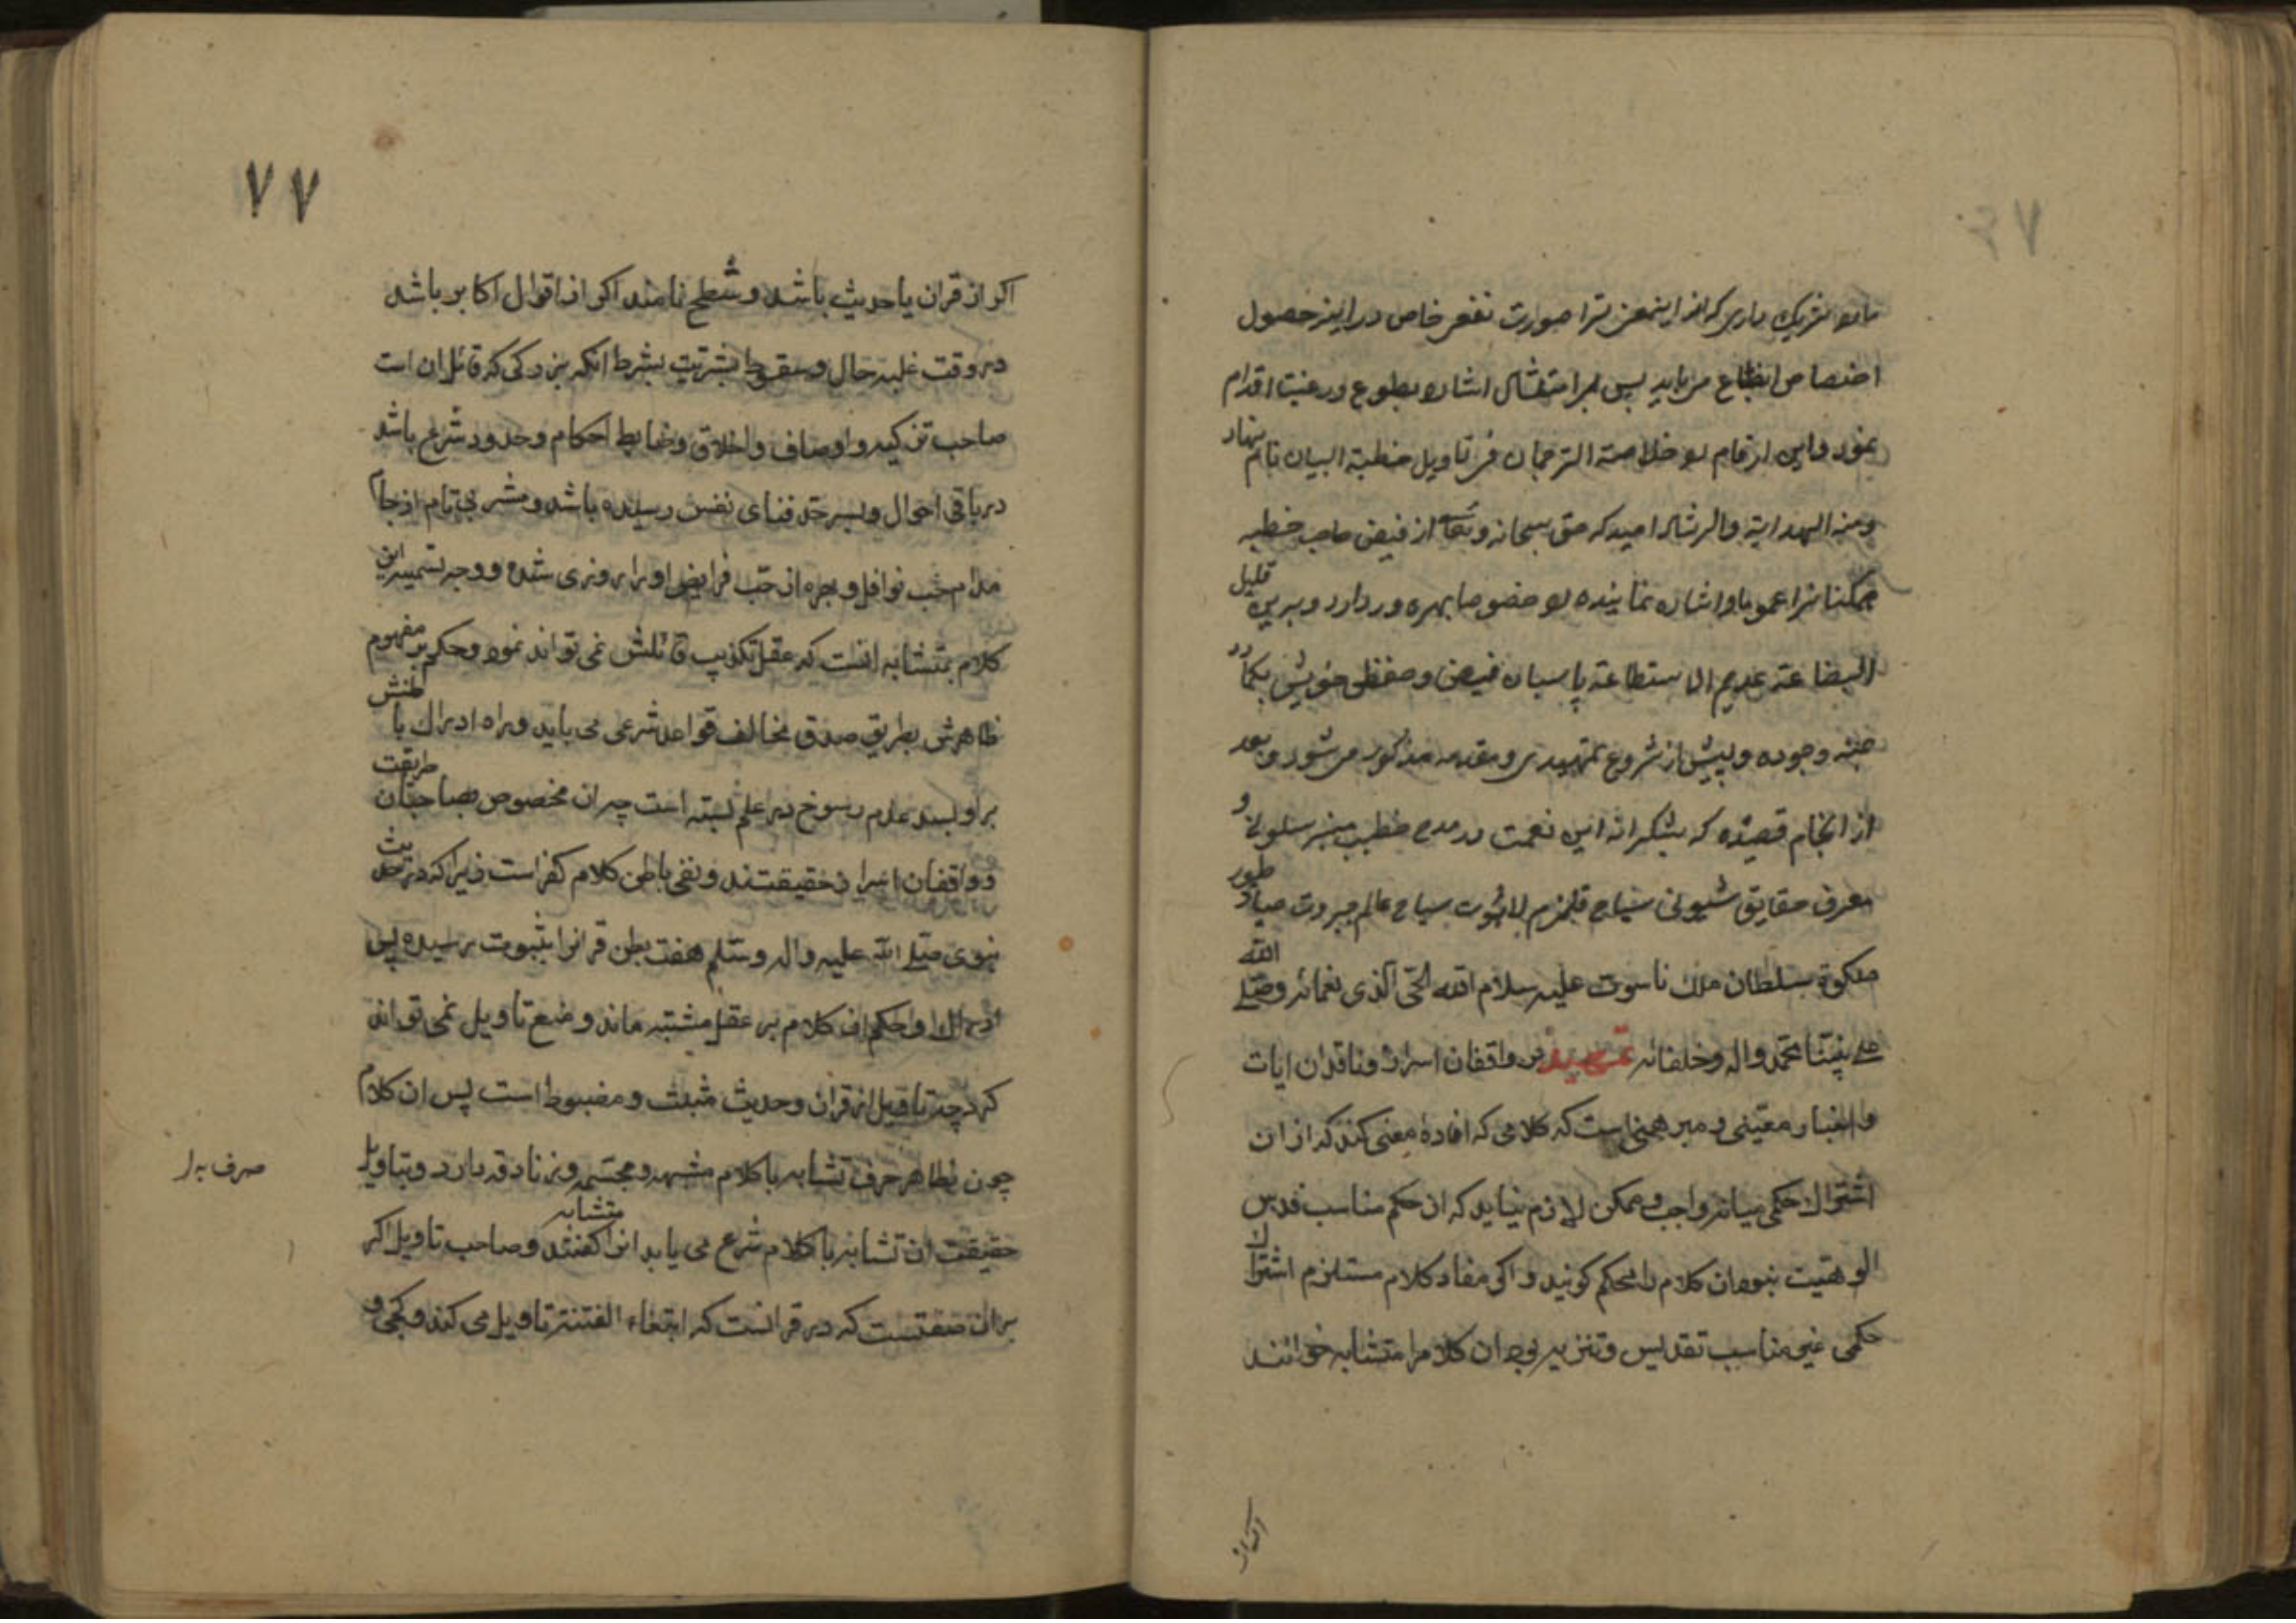 اختصاص انطباع می‌یابد پس امر امتثال اشاره بطوع و رغبت اقدام
نمود و این ارقام را خلاصة الترجمان فی تاویل خطبة البیان نام نهاد
و منه الهدایة و الرشاد امید که حق سبحانه و تعالی از فیض صاحب خطبه
ممکنانرا عموما و اشاره نماینده را خصوصا بهره‌ور دارد و برین قلیل
البضاعة عدیم الاستطاعة پاسبان فیض و حفظ خویش بکمارد
بمنه وجوده و پیش از شروع تمهیدی و مقدمه مذکور می‌شود و بعد
از انجام قصیده که بشکرانه این نعمت در مدح خطیب منبر سلونی و
معرف حقایق شیونی سیاح قلزم لاهوت سیاح عالم جبروت صیاد طیور
ملکوة سلطان ملک ناسوت علیه سلام الله الحی الذی نعمائه وصلی الله
علی نبینا محمد واله وخلفائه تمهید بر واقفان اسرار و ناقدان ایات
و اخبار معینی و مبرهنی است که کلامی که افادهٔ معنی کند که از ان
اشتراک حکمی میانه واجب و ممکن لازم نیاید که ان حکم مناسب قدس
الوهیت نبود ان کلام را محکم کویند و اکر مفاد کلام مستلزم اشتراک
حکمی غیر مناسب تقدیس و تنزیه بود ان کلام را متشابه خوانند
اکر از
٧٧
اکر از قران یا حدیث باشد و شطح نامند اکر از اقوال اکابر باشد
در وقت غلبه حال و سقوط بشریت بشرط انکه بزرکی که قائل ان است
صاحب تزکیه و اوصاف و اخلاق و ضابط احکام و حدود شرع باشد
در باقی احوال و بسرحد فنای نفس رسیده باشد و مشربی تام از جام
مدام حب نوافل و جرعه از حب فرایض او را روزی شده و وجه تسمیه این
کلام بمتشابه انست که عقل تکذیب قائلش نمی تواند نمود و حکم بر مفهوم
ظاهرش بطریق صدق مخالف قواعد شرعی می یابد و راه ادراک باطنش
بر او بسد عدم رسوخ در علم بسته است چه ان مخصوص بصاحبان طریقت
و واقفان اسرار حقیقتند و نفی باطن کلام کفر است زیرا که در حدیث
نبوی صلی الله علیه واله وسلم هفت بطن قرانرا بثبوت رسیده پس
ادراک او حکم ان کلام بر عقل مشتبه ماند و منع تاویل نمی تواند
کرد چه تاویل از قران و حدیث مثبت و مضبوط است پس ان کلام
چون بظاهر حرف تشابه با کلام مشبهه و مجسمه و زنادقه دارد و بتاویل
صرف بدل
حقیقت ان تشابه با کلام شرع می یابد انرا متشابه کفتند و صاحب تاویل اکر
بر ان صفتست که در قرانست که ابتغاء الفتنة تاویل می کند و کجی و